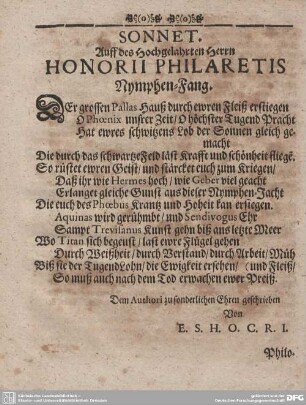 SONNET.
Auff des Hochgelahrten Herrn
HONORII PHILARETIS
Nymphen-Fang.
DEr grossen Pallas Hauß durch ewren Fleiß erstiegen
O Phœnix unsrer Zeit/ O höchster Tugend Pracht
Hat ewres schwitzens Lob der Sonnen gleich ge-
macht
Die durch das schwartze Feld läst Krafft und schönheit fliegē.
So rüstet ewren Geist/ und stärcket euch zum Kriegen/
Daß ihr wie Hermes hoch/ wie Geber viel geacht
Erlanget gleiche Gunst aus dieser Nymphen-Jacht
Die euch des Phœbus Krantz und Hoheit kan ersiegen.
Aquinas wird gerühmbt/ und Sendivogus Ehr
Sampt Trevisanus Kunst gehn biß ans letzte Meer
Wo Titan sich begeust/ last ewre Flügel gehen
Durch Weißheit/ durch Verstand/ durch Arbeit/ Müh
Biß sie der Tugend Lohn/ die Ewigkeit ersehen/ (und Fleiß/
So muß auch nach dem Tod erwachen ewer Preiß.
Dem Authori zu sonderlichen Ehren geschrieben
Von
E. S. H. O. C. R. I.
Philo-